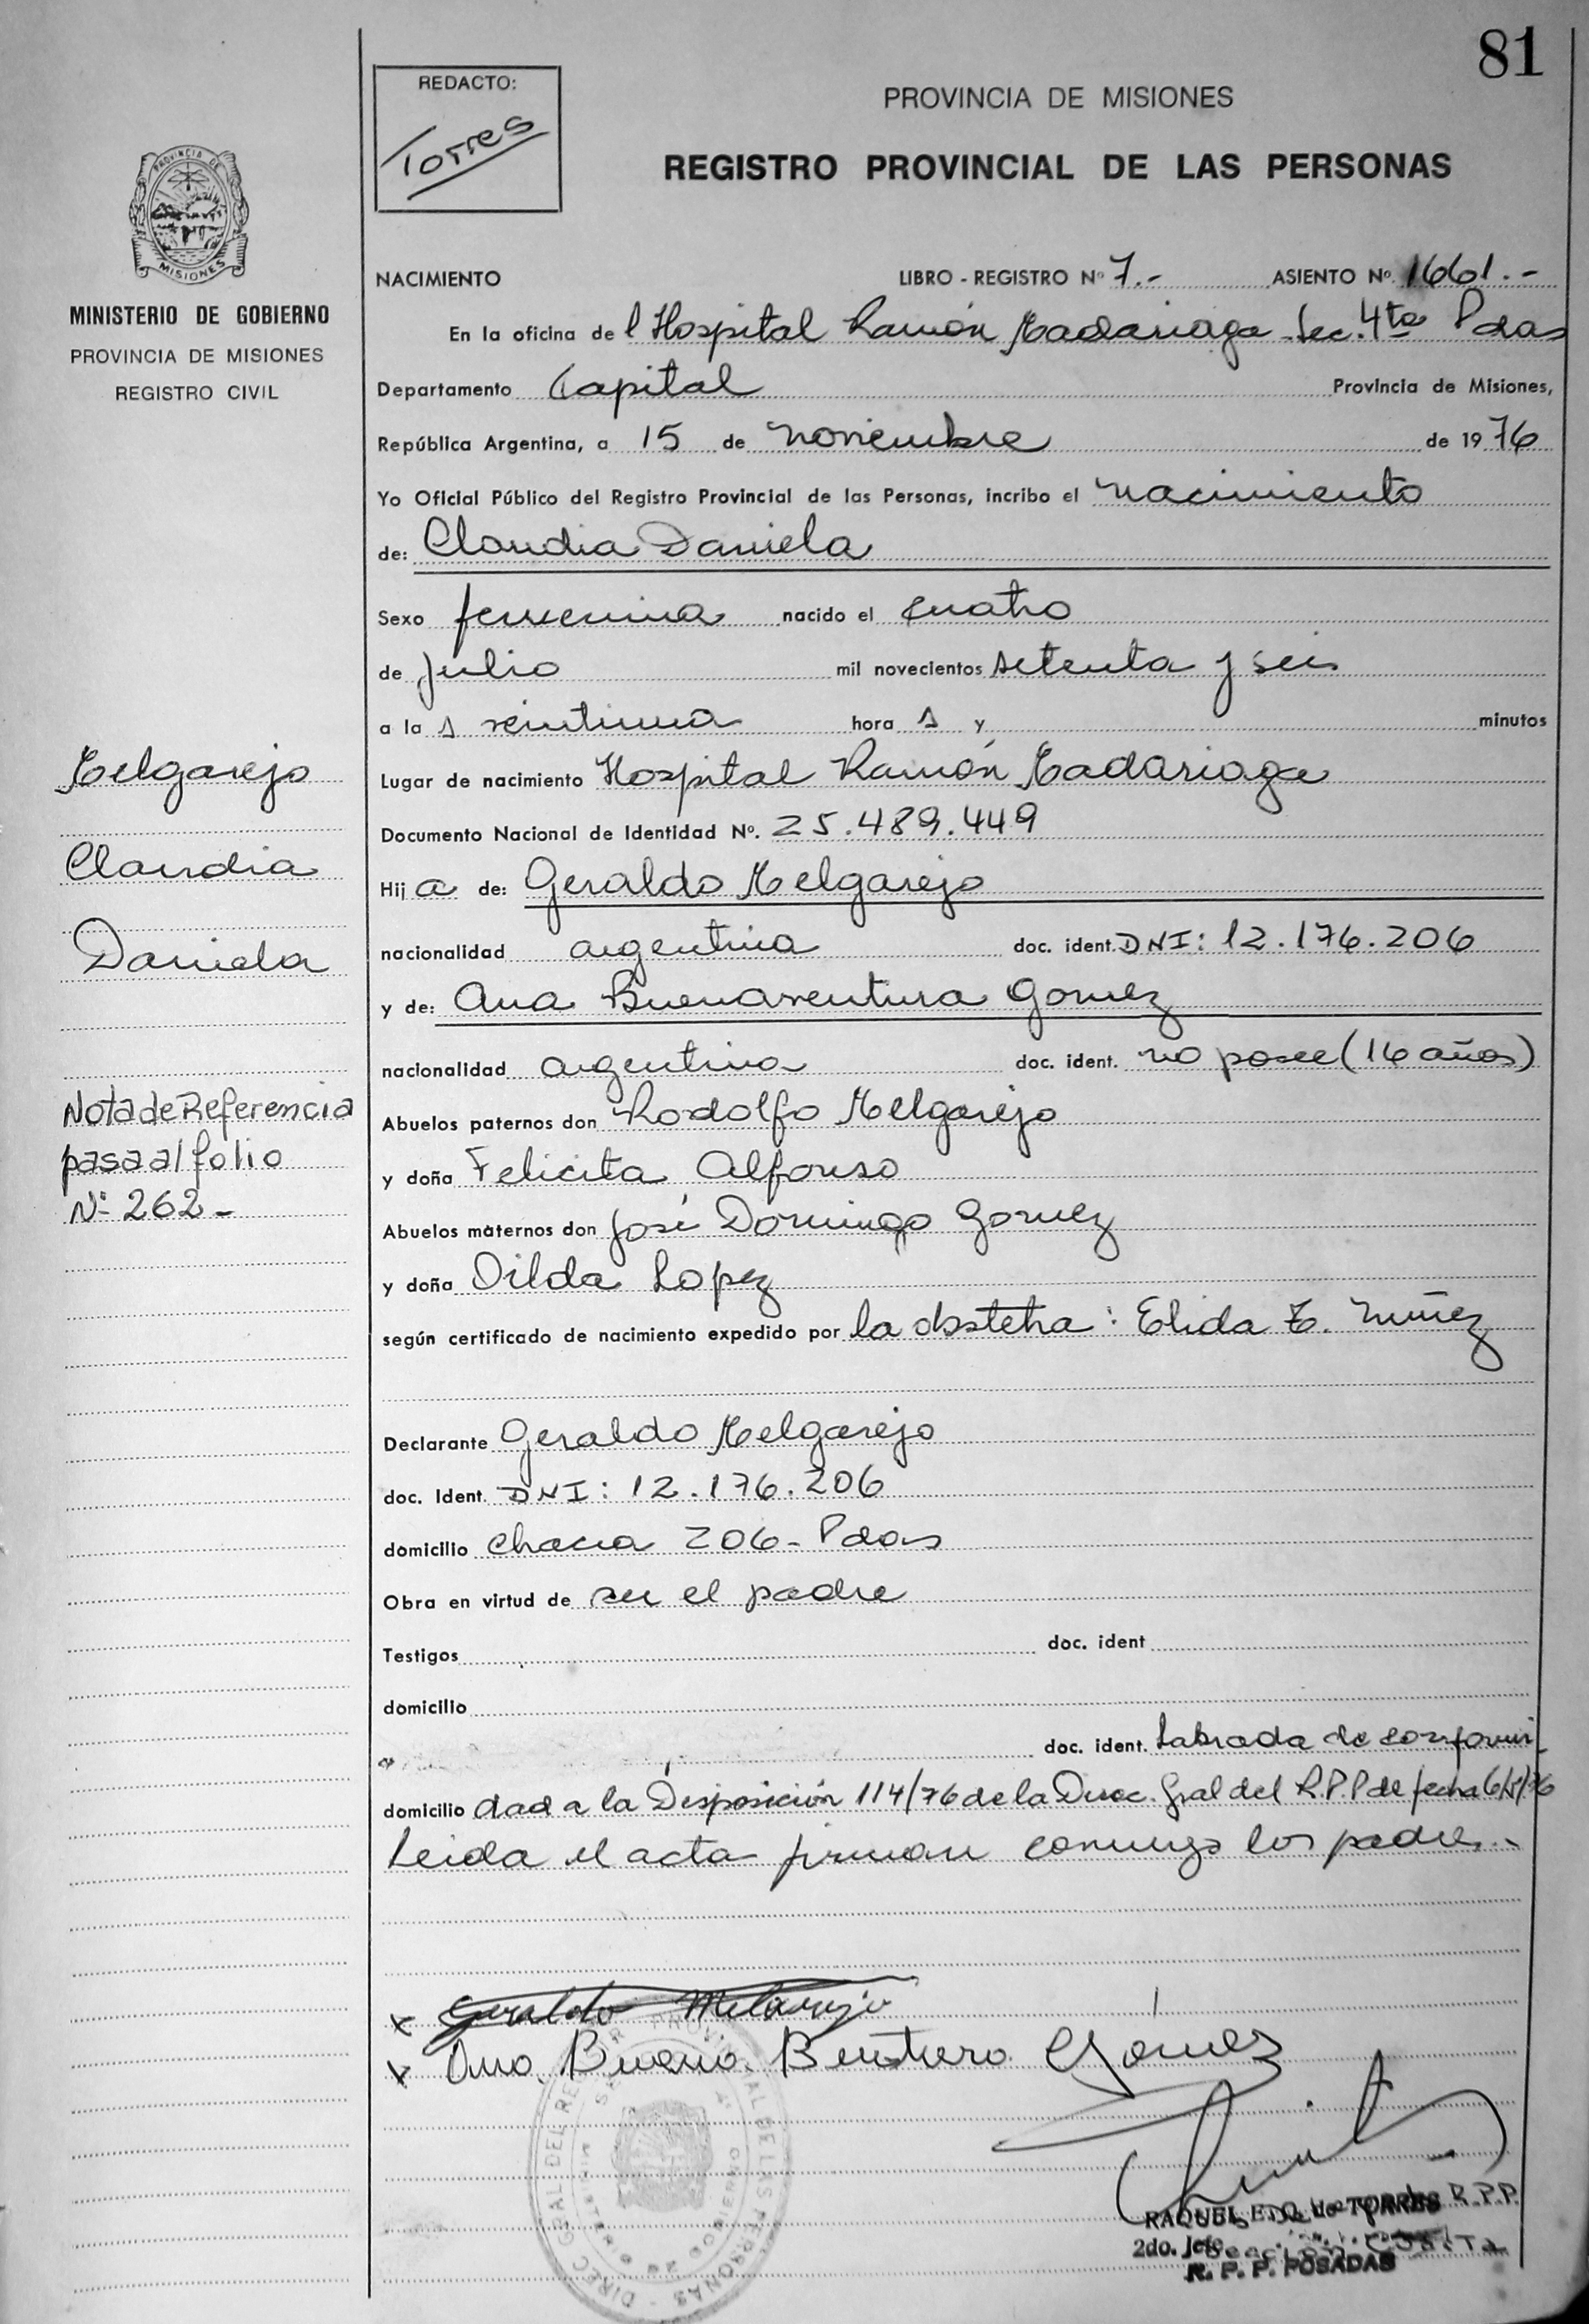 81
REDACTO:
Torres
PROVINCIA DE MISIONES
REGISTRO PROVINCIAL DE LAS PERSONAS
PROVINCIA DE
MISIONES
MINISTERIO DE GOBIERNO
PROVINCIA DE MISIONES
REGISTRO CIVIL
NACIMIENTO LIBRO - REGISTRO Nº 7.- ASIENTO Nº 1661.-
En la oficina de l Hospital Ramón Madariaga Sec. 4ta Pdas
Departamento Capital Provincia de Misiones,
República Argentina, a 15 de noviembre de 1976
Yo Oficial Público del Registro Provincial de las Personas, incribo el nacimiento
de: Claudia Daniela
Sexo femenina nacido el cuatro
de julio mil novecientos setenta y seis
a la s veintiuna hora s y minutos
Lugar de nacimiento Hospital Ramón Madariaga
Documento Nacional de Identidad Nº. 25.489.449
Hij a de: Geraldo Melgarejo
nacionalidad argentina doc. ident. DNI: 12.176.206
y de: Ana Buenaventura Gomez
nacionalidad argentina doc. ident. no posee (16 años)
Abuelos paternos don Rodolfo Melgarejo
y doña Felicita Alfonso
Abuelos maternos don José Domingo Gomez
y doña Dilda Lopez
según certificado de nacimiento expedido por la obstetra: Elida E. Nuñez
Declarante Geraldo Melgarejo
doc. Ident. DNI: 12.176.206
domicilio Chacra 206- Pdas
Obra en virtud de ser el padre
Testigos doc. ident
domicilio
doc. ident. Labrada de conformi
domicilio dad a la Disposición 114/76 de la Direc. Gral del R.P.P de fecha
Leida el acta firman conmigo los padres.-
Melgarejo
Claudia
Daniela
Nota de Referencia
pasa al folio
Nº 262-
x Geraldo Melarejo
x Ana Buena Bentura Gómez
RAQUEL E. D. de TORRES R.P.P.
2do. Jefe Sección Cuarta
R. P. P. POSADAS